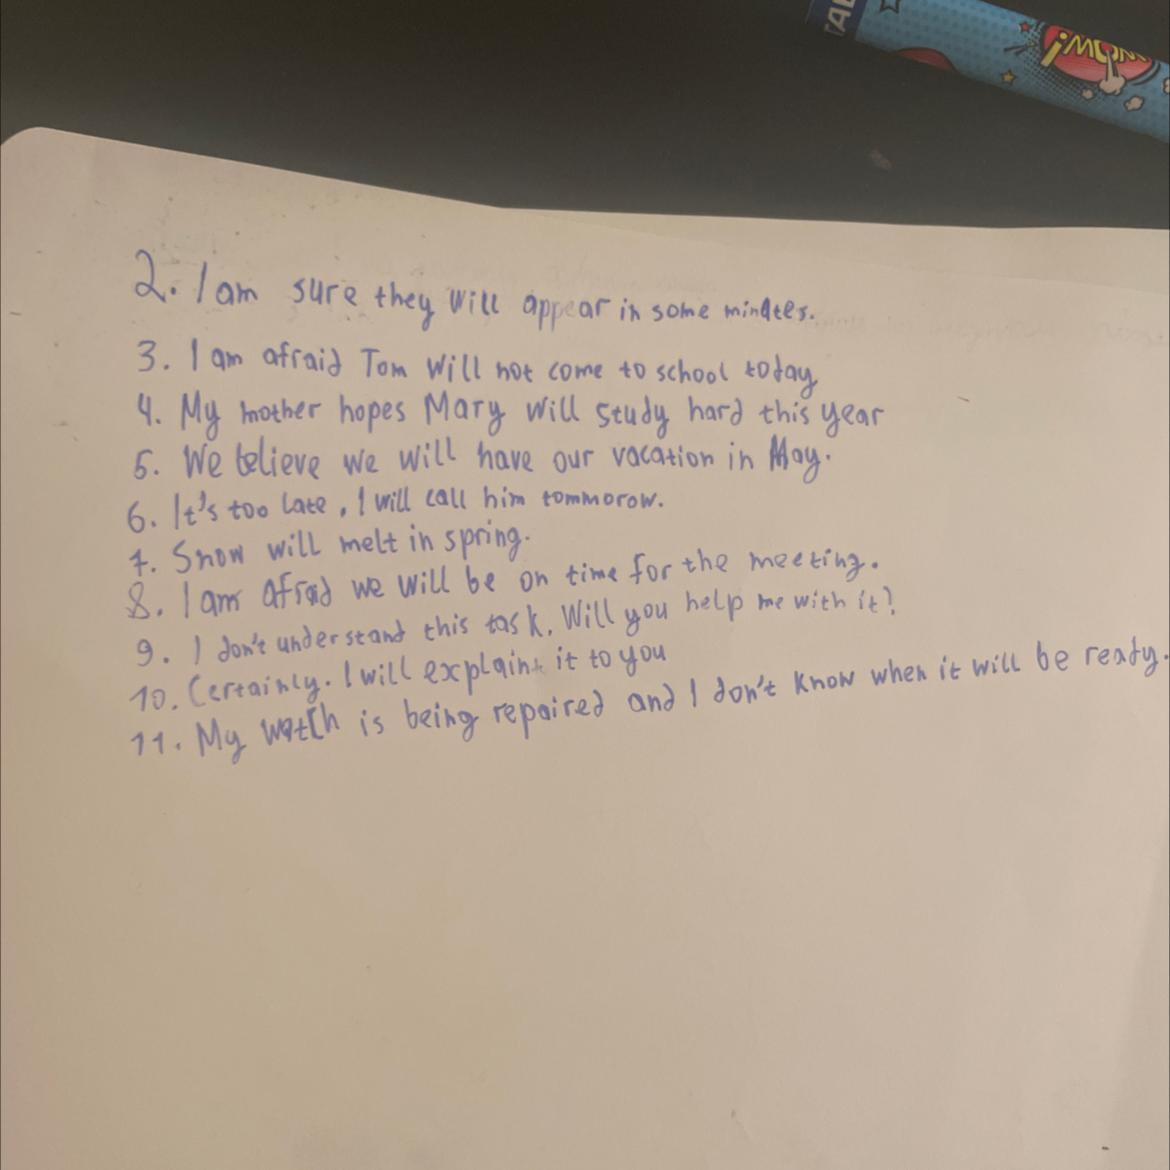 TAL
¡WOW!
2. I am sure they will appear in some minutes.
3. I am afraid Tom will not come to school today
4. My mother hopes Mary will study hard this year
5. We believe we will have our vacation in May.
6. It's too late, I will call him tommorow.
7. Snow will melt in spring.
8. I am afraid we will be on time for the meeting.
9. I don't understand this task. Will you help me with it?
10. Certainly. I will explain it to you
11. My watch is being repaired and I don't know when it will be ready.